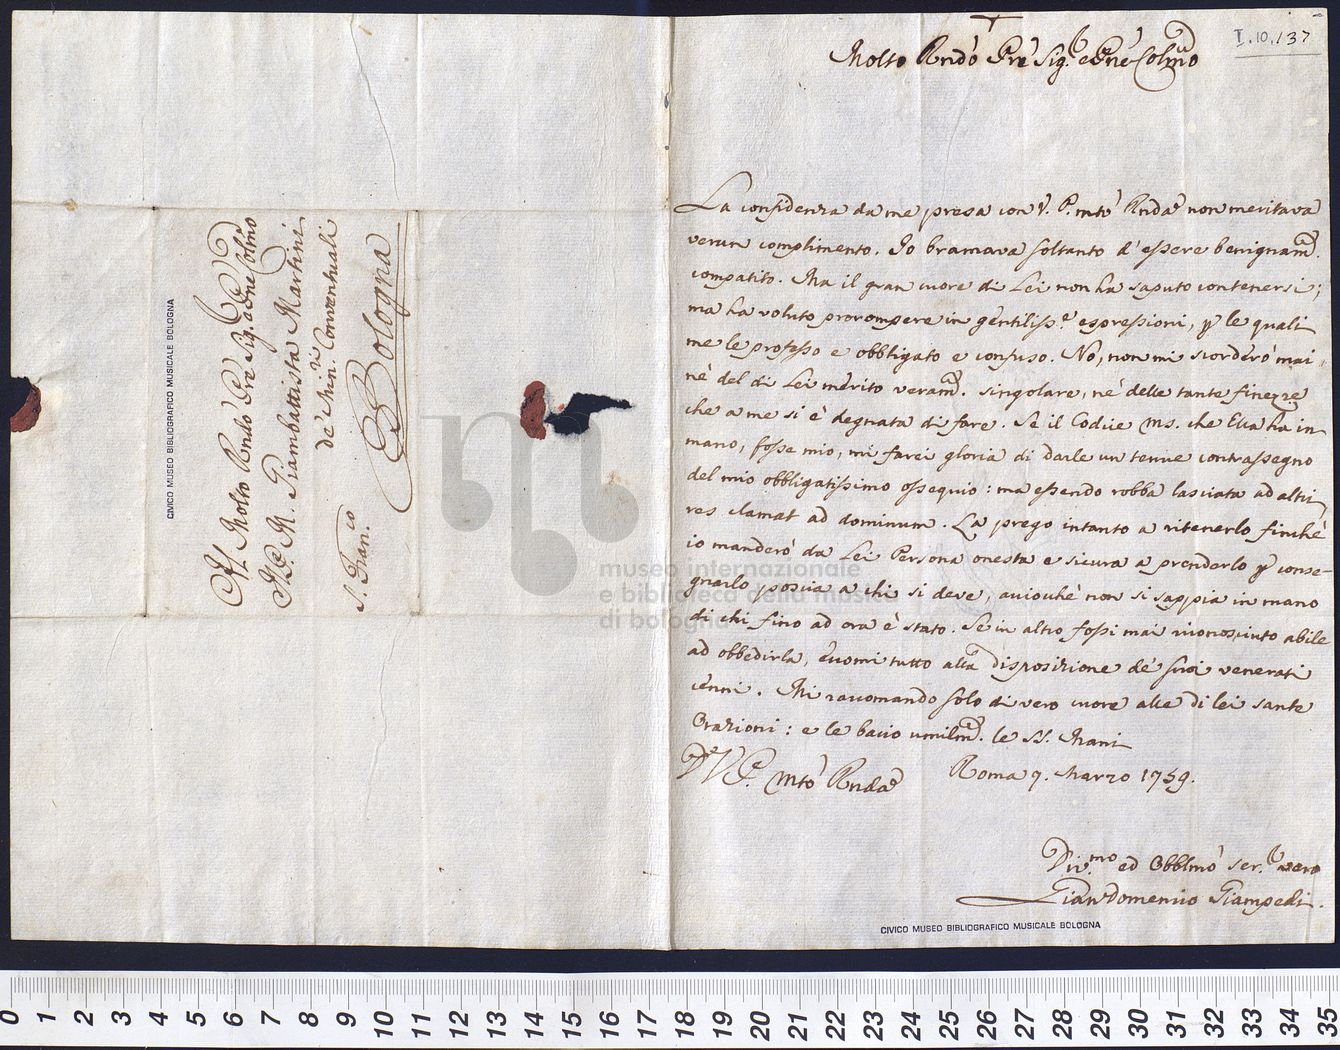 I.10.137
Molto Rndo Pre Sig.r e Pne Colmo
La confidenza da me presa con V. P. mto Rnda non meritava
verun complimento. Io bramava soltanto d'essere benignam.
compatito. Ma il gran cuore di Lei non ha saputo contenersi;
ma ha voluto prorompere in gentiliss.e espressioni, p le quali
me le professo e obbligato e confuso. No, non mi scorderò mai
nè del di Lei mèrito veram. singolare, nè delle tante finezze
che a me si è degnata di fare. Se il Codice ms. che Ella ha in
mano, fosse mio, mi farei gloria di darle un tenue contrassegno
del mio obbligatissimo ossequio: ma essendo robba lasciata ad altri,
res clamat ad dominum. La prego intanto a ritenerlo finchè
io manderò da Lei Persona onesta e sicura a prenderlo p conse-
gnarlo poscia a chi si deve, acciochè non si sappia in mano
di chi fino ad ora è stato. Se in altro fossi mai riconosciuto abile
ad obbedirla, èccomi tutto alla disposizione de' suoi venerati
cènni. Mi raccomando solo di vero cuore alle di lei sante
Orazioni: e le bacio umilm. le SS. Mani
D V. P. Mto Rnda
Roma 9. Marzo 1759.
Div.mo ed Obblmo ser.r vero
Gian Domenico Giampedi.
CIVICO MUSEO BIBLIOGRAFICO MUSICALE BOLOGNA
Al Molto Rndo Pre Sig.r e Pne Colmo
Il P. M. Giambattista Martini
de' Min.ri Conventuali
S. Fran.co
Bologna
CIVICO MUSEO BIBLIOGRAFICO MUSICALE BOLOGNA
museo internazionale
e biblioteca della musica
di bologna
0 1 2 3 4 5 6 7 8 9 10 11 12 13 14 15 16 17 18 19 20 21 22 23 24 25 26 27 28 29 30 31 32 33 34 35